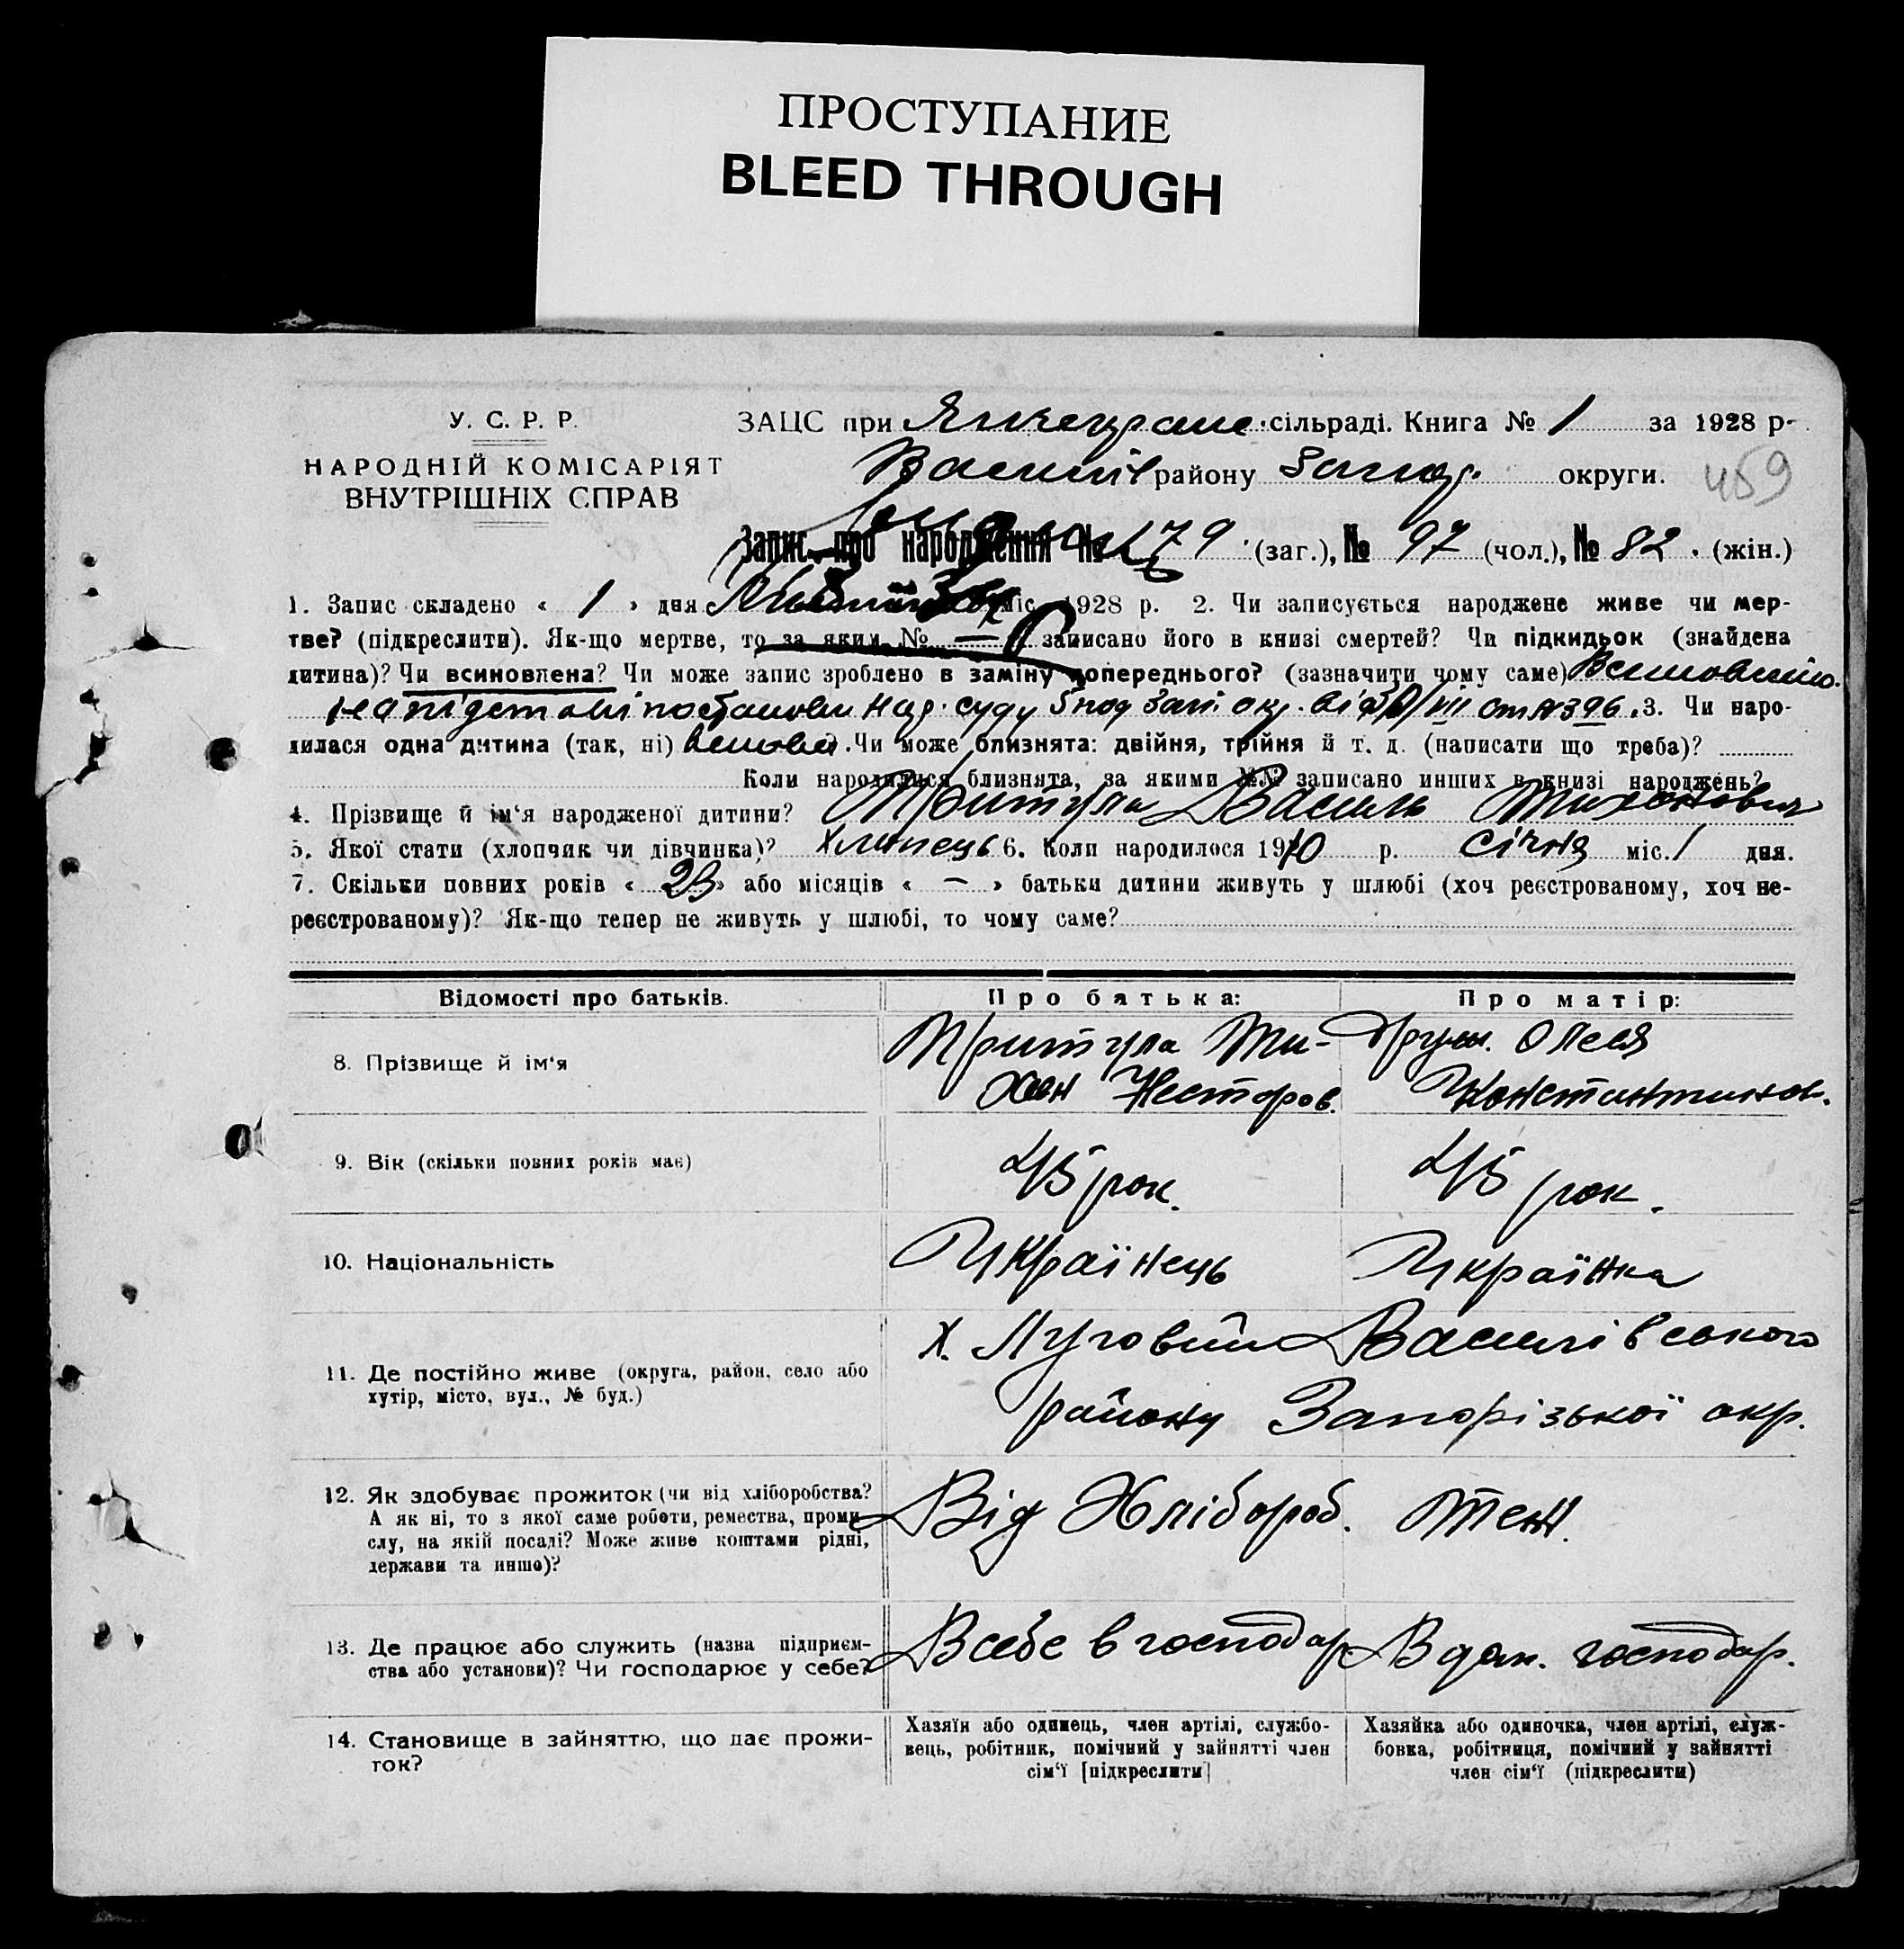 ПРОСТУПАНИЕ
BLEED THROUGH
У. С. Р. Р.
НАРОДНІЙ КОМІСАРІЯТ
ВНУТРІШНІХ СПРАВ
ЗАЦС при сільраді. Книга № 1 за 1928 р.
Василів району Запор. округи. 459
Запис про народження № 179 (заг.), № 97 (чол.), № 82 (жін.)
1. Запис складено « 1 » дня міс. 1928 р. 2. Чи записується народжене живе чи мер-
тве? (підкреслити). Як-що мертве, то за яким № — записано його в книзі смертей? Чи підкидьок (знайдена
дитина)? Чи всиновлена? Чи може запис зроблено в заміну попереднього? (зазначити чому саме)
на підставі постанови Нар. суду окр. від № 396. 3. Чи наро-
дилася одна дитина (так, ні) Чи може близнята: двійня, трійня й т. д. (написати що треба)?
Коли народилися близнята, за якими №№ записано инших в книзі народжень?
4. Прізвище й ім'я народженої дитини? Притула Василь Тихонович
5. Якої стати (хлопчик чи дівчинка)? Хлопець 6. Коли народилося 1910 р. січня міс. 1 дня.
7. Скільки повних років « 23 » або місяців « — » батьки дитини живуть у шлюбі (хоч реєстрованому, хоч не-
реєстрованому)? Як-що тепер не живуть у шлюбі, то чому саме?
Відомості про батьків. Про батька: Про матір:
8. Прізвище й ім'я Притула Ти- Олеся
хон Несторов. Константинов.
9. Вік (скільки повних років має) 45 рок. 45 рок.
10. Національність Українець Українка
х. Луговий Василівського
11. Де постійно живе (округа, район, село або
хутір, місто, вул., № буд.) району Запорізької окр.
12. Як здобуває прожиток (чи від хліборобства?
А як ні, то з якої саме роботи, ремества, проми-
слу, на якій посаді? Може живе коштами рідні,
держави та инше)? Від Хлібороб. Теж.
13. Де працює або служить (назва підприєм-
ства або установи)? Чи господарює у себе? В себе в господар. В дом. господар.
14. Становище в зайняттю, що дає прожи-
ток?
Хазяїн або одинець, член артілі, службо-
вець, робітник, помічний у зайнятті член
сім'ї [підкреслити]
Хазяйка або одиночка, член артілі, служ-
бовка, робітниця, помічний у зайнятті
член сім'ї (підкреслити)